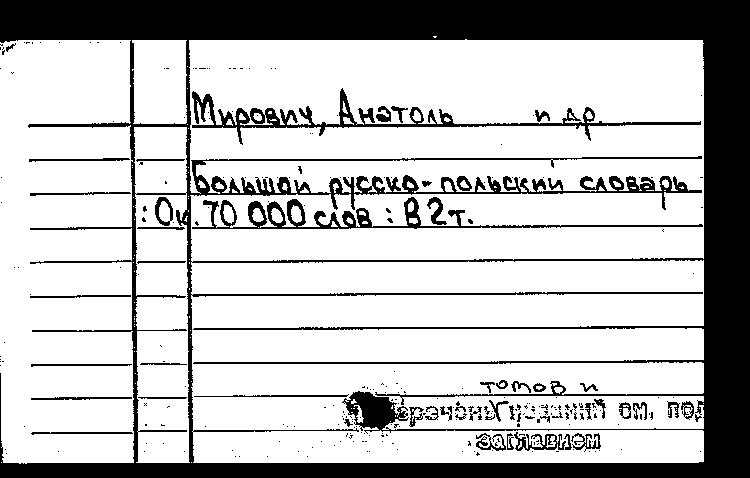 Мирович, Анатоль и др.
Большой русско-польский словарь
: Ок. 70 000 слов : В 2 т.
томов и
Перечень изданий см. под
заглавием